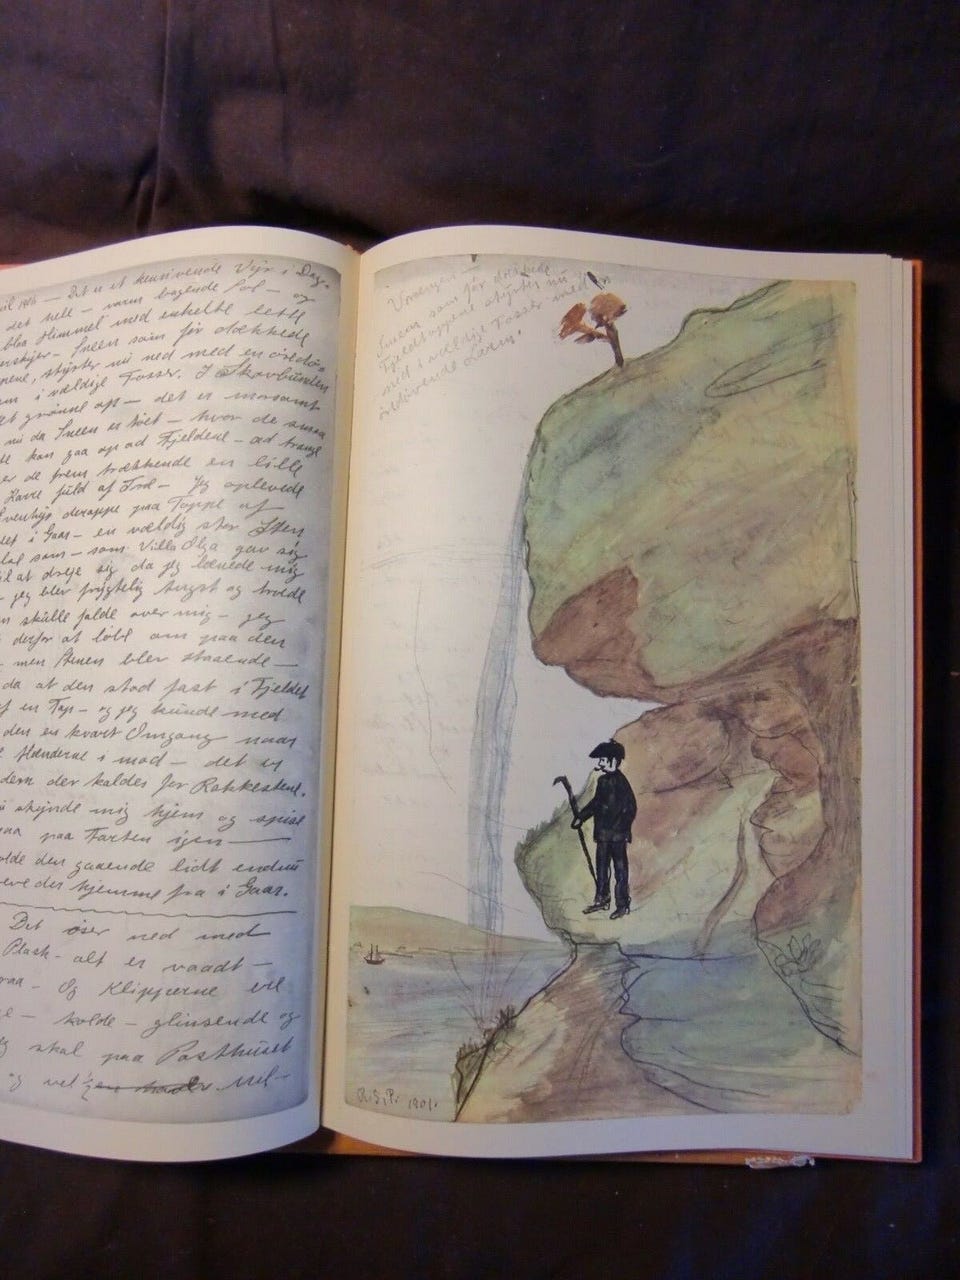 Det er et henrivende Vejr i Dag.
det hele — varm bagende Sol — og
blaa Himmel med enkelte lette
Sneen som før dækkede
styrter nu ned med en øredø-
i vældige Fosser. I Skovbunden
grønne op — det er morsomt
nu da Sneen er tøet — hvor de smaa
kan gaa op ad Fjeldene — ad trange
er de frem trækkende en lille
Karre fuld af Træ — Jeg oplevede
Eventyr deroppe paa Toppe af
i Gaar — en vældig stor Sten
som — som Villa Olga gav sig
til at dreje sig da jeg lænede mig
— jeg blev frygtelig Angst og troede
skulle falde over mig — jeg
derfor at løbe om paa den
— men Stenen blev staaende —
da at den stod fast i Fjeldet
af en Tap — og jeg kunde med
den en kvart Omgang naar
Hænderne i mod — det er
dem der kaldes for Rokkestene.
skynde mig hjem og spise
paa Farten igen —
den gaaende lidt endnu
der hjemme fra i Gaar.
Det øser ned med
Plask — alt er vaadt —
— Og Klipperne
— kolde — glinsende og
skal paa Posthuset
og vel
Sneen som før dækkede
Fjeldtoppene styrter nu
ned i vældige Fosser med
øredøvende Larm
R.S.P. 1901.